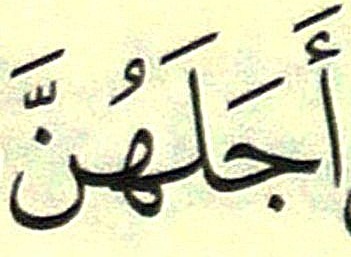 أَجَلَهُنَّ